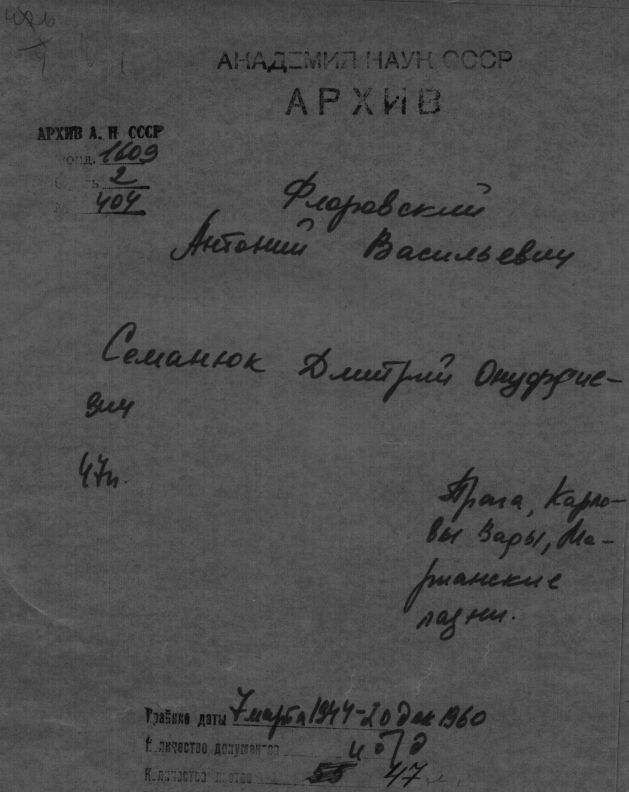 АКАДЕМИЯ НАУК СССР
АРХИВ
АРХИВ А. Н СССР
Фонд. 1609
Опись 2
№ 404
Флоровский
Антоний Васильевич
Семанюк Дмитрий Онуфрие-
вич
47п.
Прага, Карло-
вы Вары, Ма-
рианские
лазни.
Крайние даты 7 марта 1944-20 дек 1960
Количество документов
Количество листов 55 47 л.